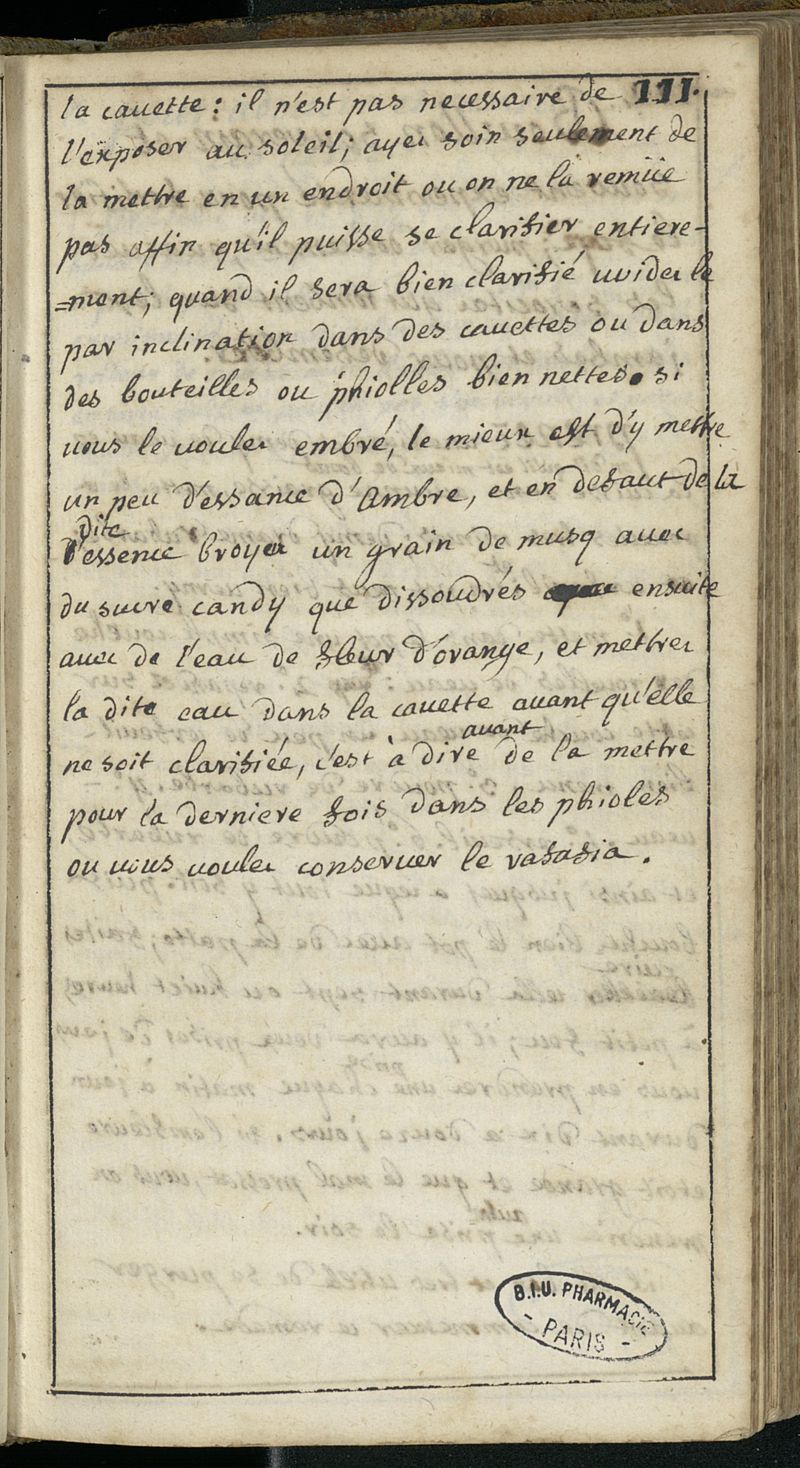 111.
la cauette : il n'est pas necessaire de
l'exposer au soleil; ayez soin seulement de
la mettre en un endroit ou on ne la remüe
pas affin qu'il puisse se clarifier entiere-
=ment; quand il sera bien clarifié uvidez le
par inclination dans des cauettes ou dans
des bouteilles ou phiolles bien nettes. si
uous le voulez embré, le mieux est d'y mettre
un peu d'essance d'Ambre, et en defaut de la
dite
d'essence broyez un grain de musq auec
du sucre candy que dissoudrés ensuite
auec de l'eau de fleur d'orange, et mettrez
la dite eau dans la cauette auant qu'elle
ne soit clarifiée, c'est à dire auant de la mettre
pour la derniere fois dans les phioles
ou uous uoulez conseruer le rafafia.
B.I.U. PHARMACIE
- PARIS -